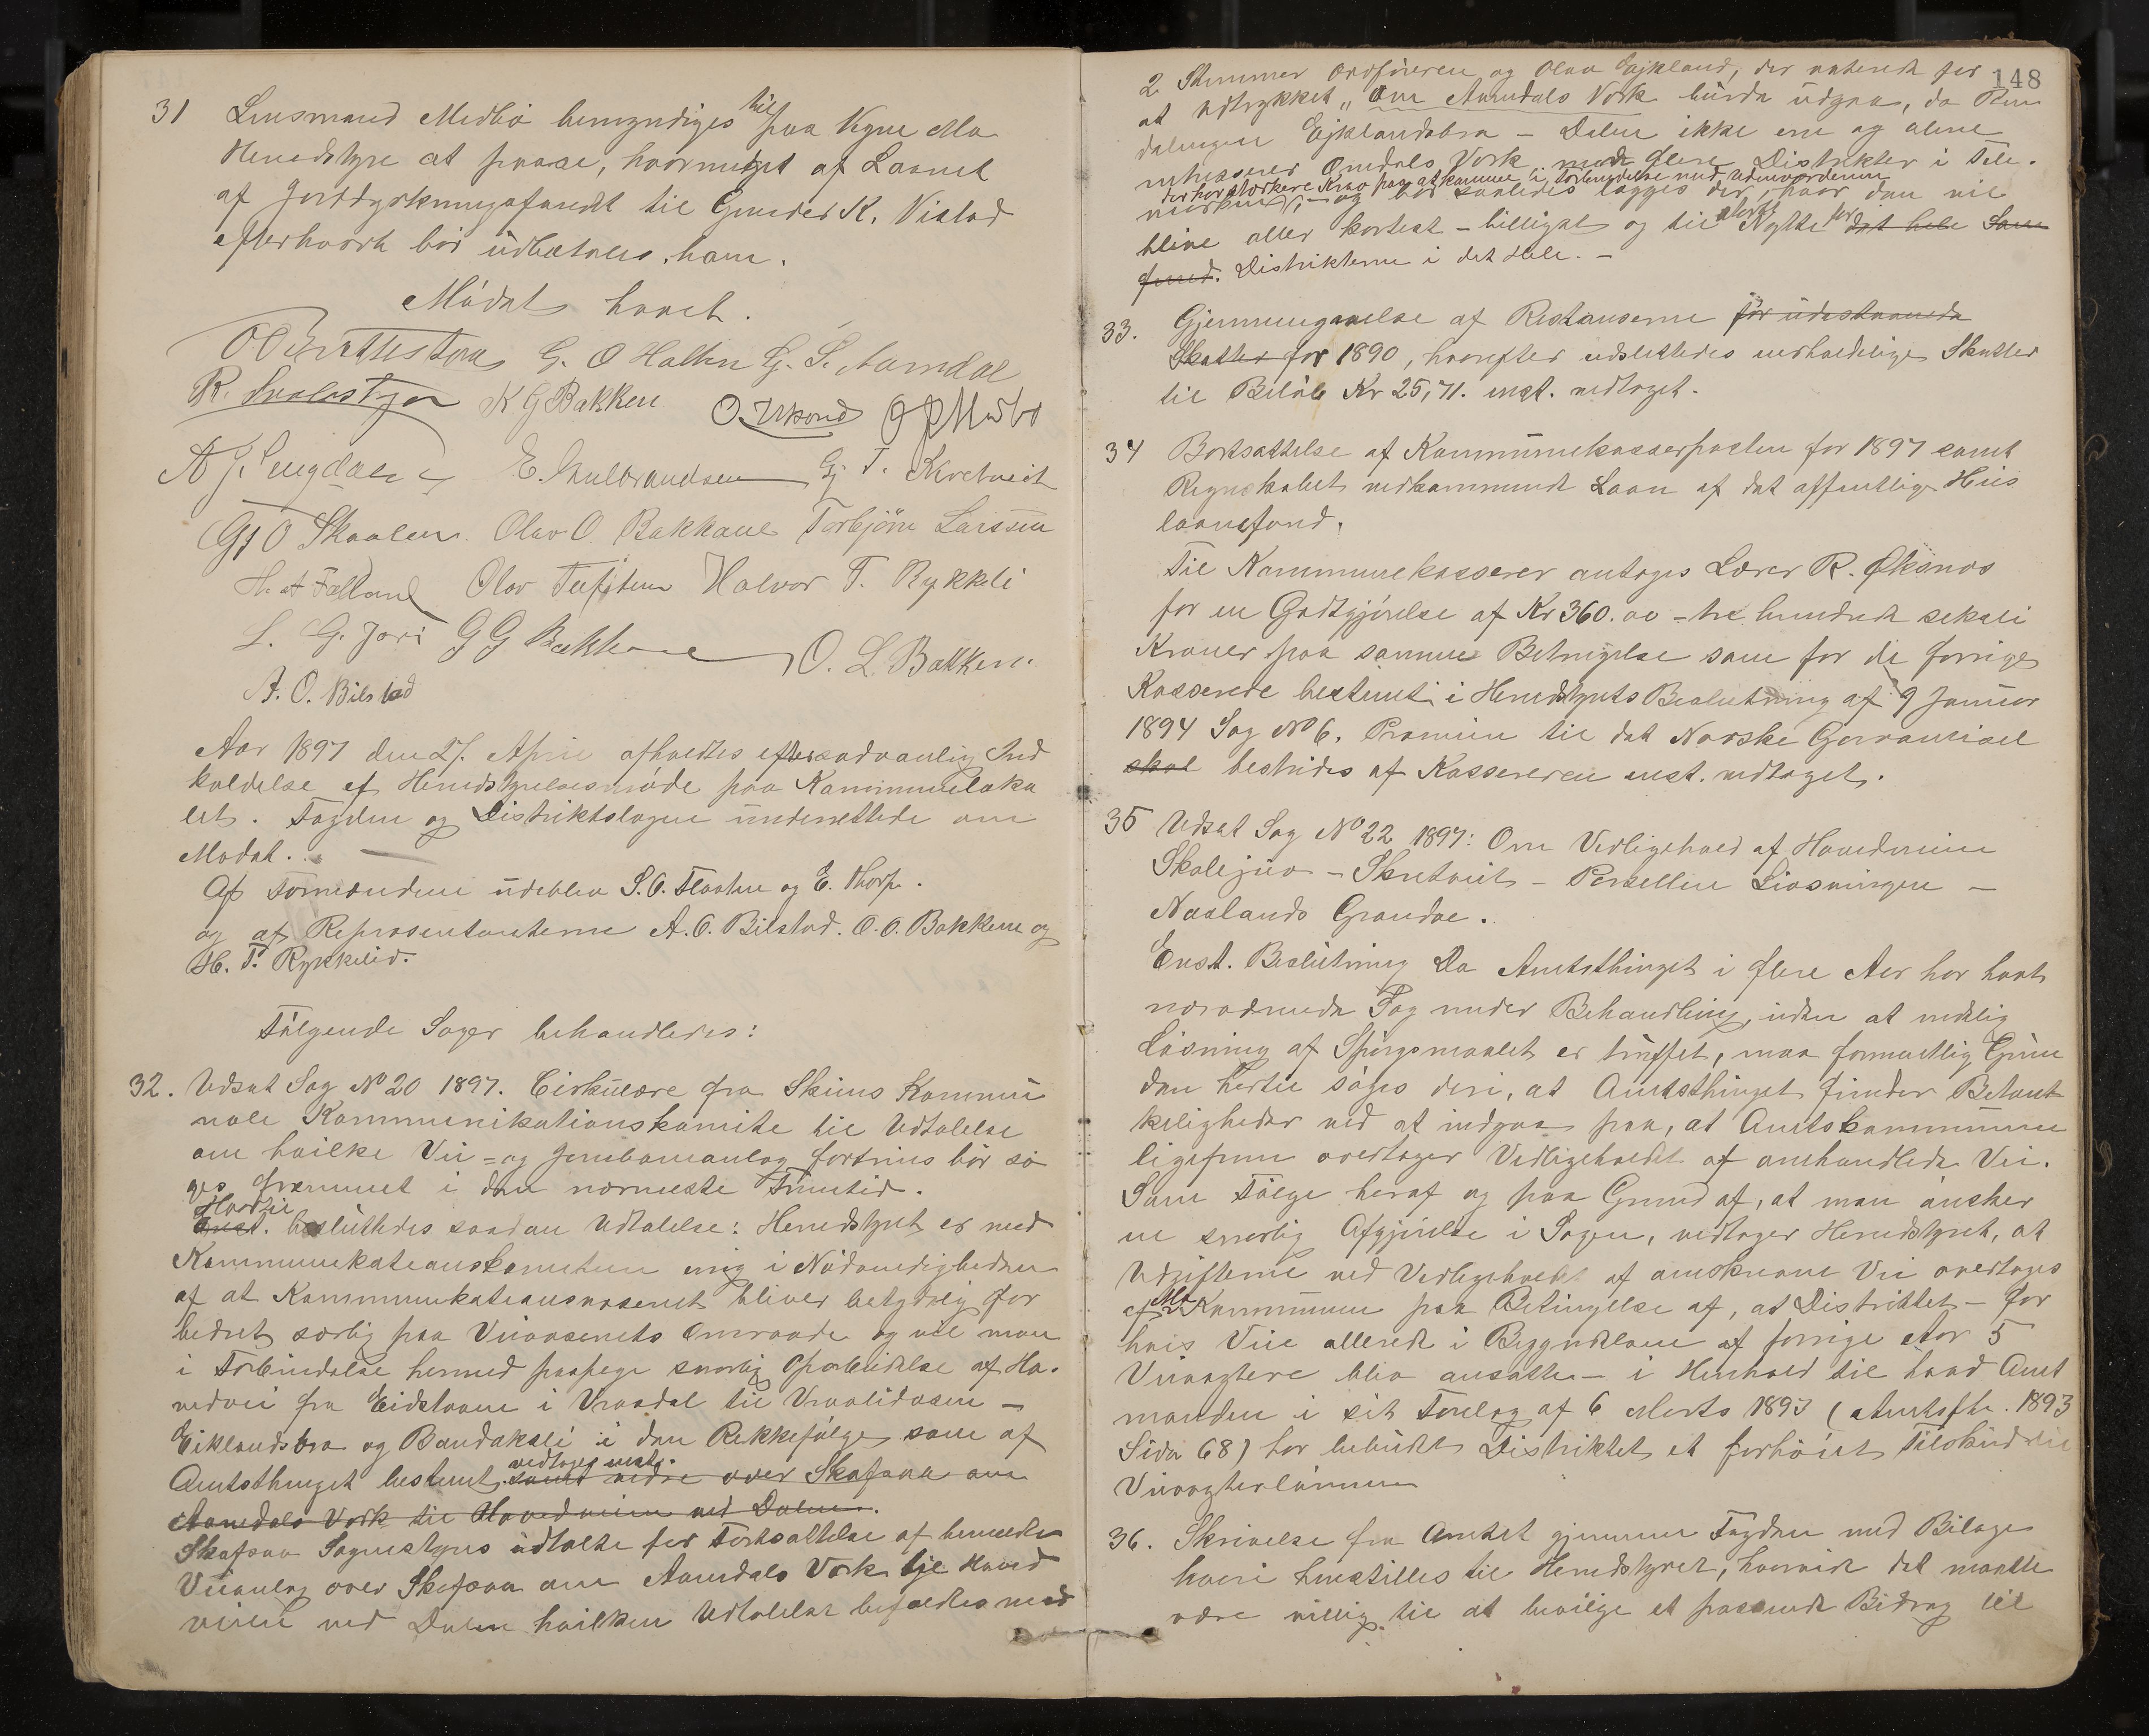 31 Lensmand Medbö bemyndiges til paa Vegne Mo
Herredstyre at paase, hvormeget af Laanet
af Jorddyrkningsfondet til Gunder K. Vistad
efterhvert bör udbetales ham.
Mödet hævet.
G. O Halten G. S. Aamdal
K G Bakken
E. Gulbrandsen G. T. Skretveit
Gj O Skaalen. Olav O. Bakkane Torbjörn Larssen
Olav Halvor T. Rykkeli
L. G. Jori G G O. L. Bakken.
A. O. Bilstad
Aar 1897 den 27. April afholdtes efter sædvanlig Ind
kaldelse et Herredstyrelsesmöde paa Kommuneloka
let. Fogden og Distriktslægen underrettede om
Mödet.
Af Formændene udeblev S. O. Flaaten og E. Thorp.
og af Repræsentanterne A. O. Bilstad. O. O. Bakkene og
H. T. Rykkelid.
Fölgende Sager behandledes:
32. Udsat Sag No 20 1897. Cirkulære fra Skiens Kommu
nale Kommunikationskomite til Udtalelse
om hvilke Vei- og Jernbaneanlæg fortrins bör sö
ges fremmet i den nærmeste Fremtid.
Hertil
Enst. besluttedes saadan Udtalelse: Herredstyret er med
Kommunikationskomiteen enig i Nödvendigheden
af at Kommunikationsvæsenet bliver betydelig for
bedret særlig paa Veivæsenets Omraade og vil man
i Forbindelse hermed paapege snarlig Oparbeidelse af Ho-
vedvei fra Eidstveane i Vraadal til Vraalidosen –
Eiklandsbro og Bandaksli i den Rekkefölge som af
vedtages enst.
Amtsthinget bestemt samt videre over Skafsaa om
Aamdals Værk til Hovedveien ved Dalen.
Skafsaa Sognestyre udtalte for Fortsættelse af bemeldte
Veianlæg over Skafsaa om Aamdals Værk til Hoved
veien ved Dalen hvilken Udtalelse befaldtes med
148
2 Stemmer Ordföreren og Olav Ejkland, der voterede for
at Udtrykket „om Aamdals Værk burde udgaa, da Rem
dalingen Ejklandsbro – Dalen ikke ene og alene
interesserer Omdals Værk, men flere Distrikter i Tele-
der har sterkere Krav paa at komme i Forbindelse med Udenverdenen
marken, – og bör saaledes lægges der, hvor den vil
störst for
blive aller kortest – billigst og til Nytte det hele Sam
fund. Distrikterne i det Hele. –
33. Gjennemgaaelse af Restanserne for udestaaende
Skatter for 1890, hvorefter udslettedes uerholdelige Skatter
til Belöb Kr 25,71. enst. vedtaget.
34 Bortsættelse af Kommunekasserposten for 1897 samt
Regnskabet vedkommende Laan af det offentlige Huus
laanefond.
Til Kommunekasserer antages Lærer R. Øksnos
for en Godtgjörelse af Kr 360.00 – tre hundrede seksti
Kroner paa samme Betingelse som for de forrige
Kasserere bestemt i Herredstyrets Beslutning af 9 Januar
1894 Sag No 6. Præmien til det Norske Garantisel
skal bestrides af Kassereren enst. vedtaget.
35 Udsat Sag No 22 1897: Om Vedligehold af Hovedveien
– Skretveit – Parsellen –
Naslands Grændse.
Enst. Beslutning Da Amtsthinget i flere Aar har havt
nærværende Sag under Behandling, uden at endelig
Lösning af Spörgsmaalet er truffet, maa formentlig Grun
den hertil söges deri, at Amtsthinget finder Betænk
keligheder ved at indgaa paa, at Amtskommunen
ligefrem overtager Vedligeholdet af omhandlede Vei.
Som Fölge heraf og paa Grund af, at man önsker
en snarlig Afgjörelse i Sagen, vedtager Herredstyret, at
Udgifterne ved Vedligeholdet af omskrevne Vei overtages
af Mo Kommune paa Betingelse af, at Distriktet – for
hvis Veie allerede i Begyndelsen af forrige Aar 5
Veivogtere blev ansatte – i Henhold til hvad Amt
manden i sit Forelæg af 6 Marts 1893 (Amtsfh. 1893
Side 68) har bebudet Distriktet et forhöiet Tilskud til
Veivogterlönnen
36. Skrivelse fra Amtet gjennem Fogden med Bilage
hvori henstilles til Herredstyret, hvorvidt det maatte
være villig til at bevilge et passende Bidrag til